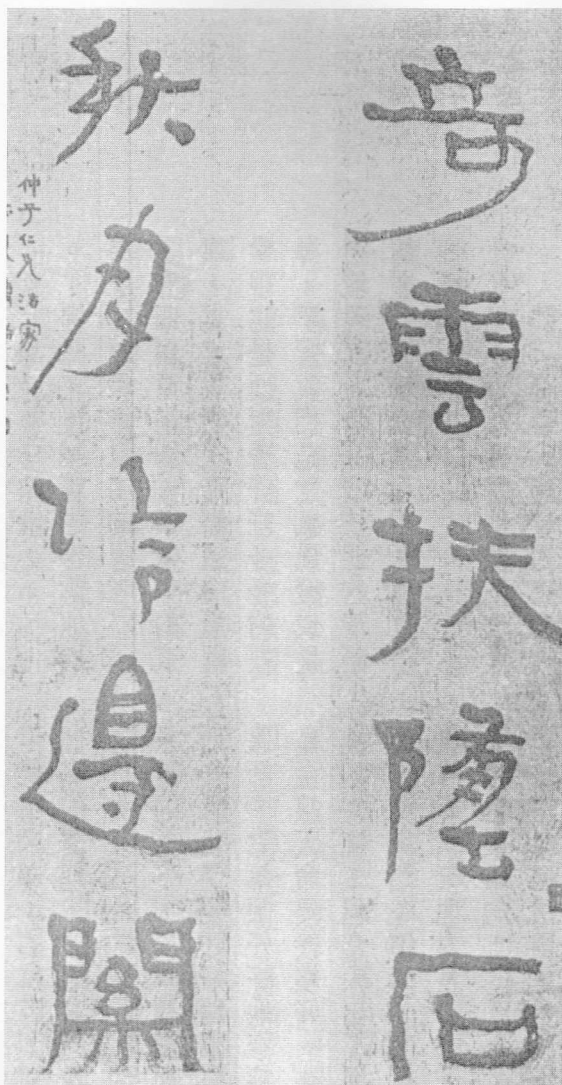 奇雲扶墜石
秋月冷邊關
仲子仁兄法家